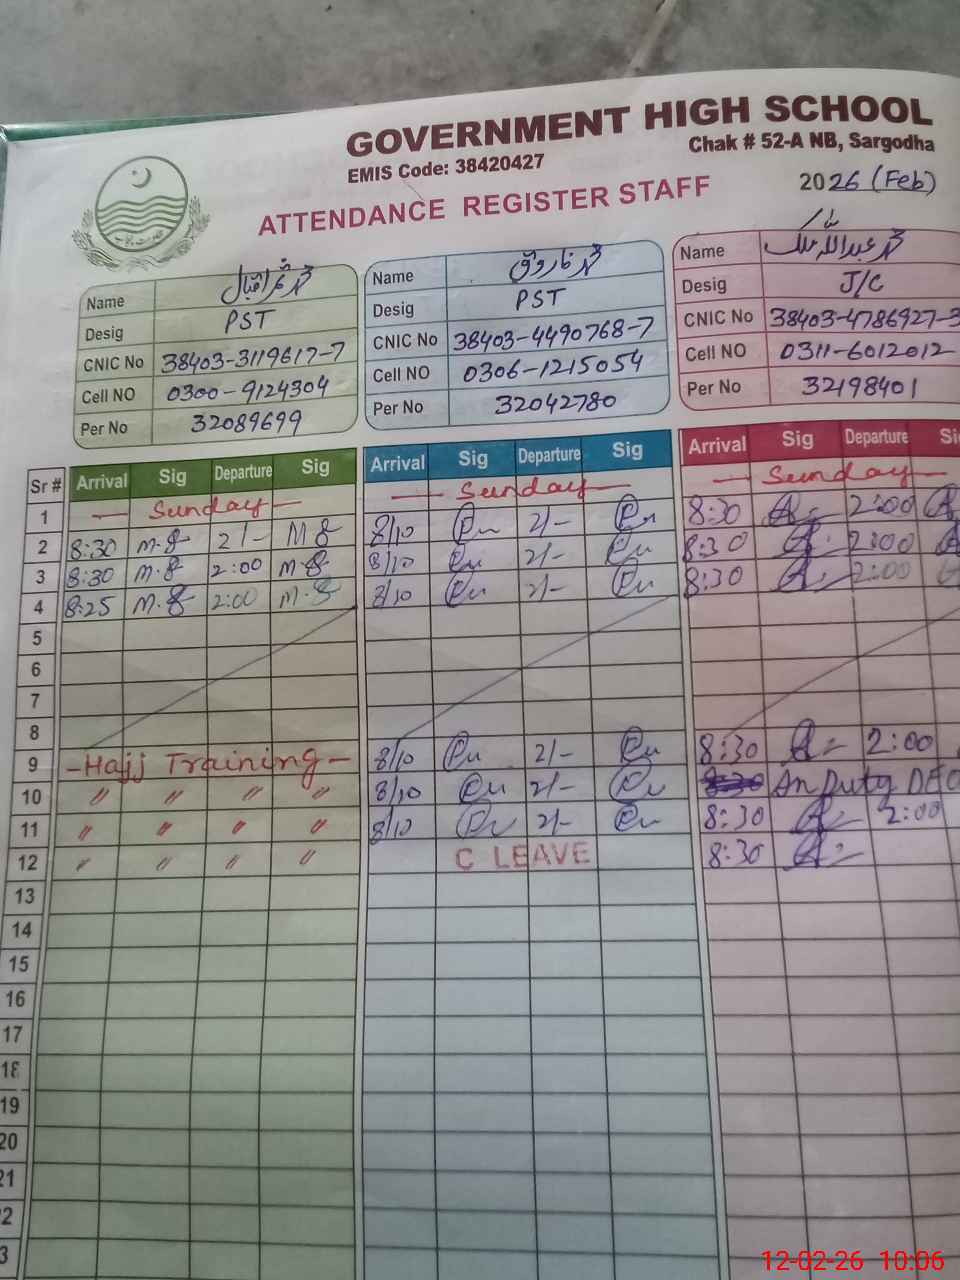 GOVERNMENT HIGH SCHOOL
EMIS Code: 38420427 Chak # 52-A NB, Sargodha
ATTENDANCE REGISTER STAFF 2026 (Feb)
Name
Desig PST
CNIC No 38403-3119617-7
Cell NO 0300-9124304
Per No 32089699
Name محمد فاروق
Desig PST
CNIC No 38403-4490768-7
Cell NO 0306-1215054
Per No 32042780
Name محمد عبداللہ ملک
Desig J/C
CNIC No 38403-4786927-3
Cell NO 0311-6012012
Per No 32198401
Sr # Arrival Sig Departure Sig Arrival Sig Departure Sig Arrival Sig Departure Si
1 — Sunday — — Sunday — — Sunday —
2 8:30 2/- 8/10 2/- 8:30 2:00
3 8:30 2:00 8/10 2/- 8:30 2:00
4 8:25 2:00 8/10 2/- 8:30 2:00
5
6
7
8
9 -Hajj Training- 8/10 2/- 8:30 2:00
10 〃 〃 〃 〃 8/10 2/- 8:30 On Duty DEO
11 〃 〃 〃 〃 8/10 2/- 8:30 2:00
12 〃 〃 〃 〃 C LEAVE 8:30
13
14
15
16
17
18
19
20
21
2
3
12-02-26 10:06